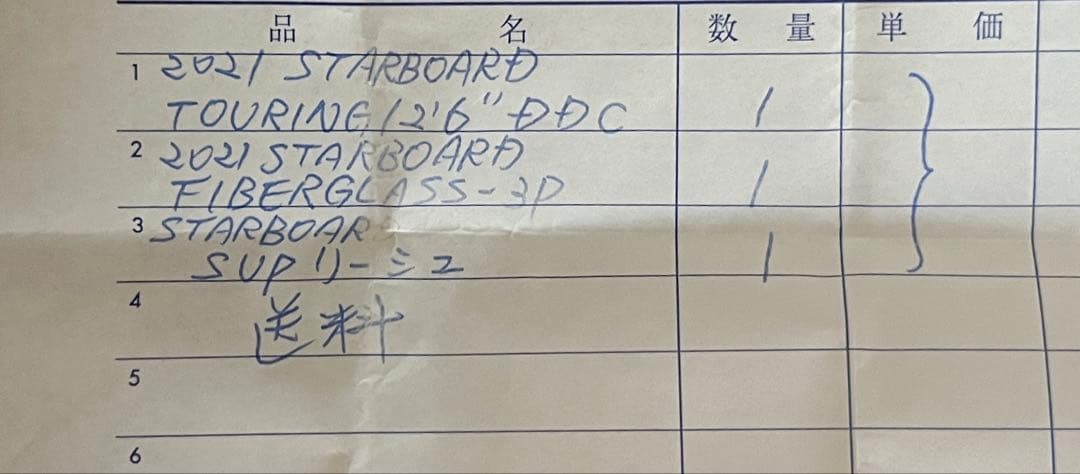 品名 数量 単価
1 2021 STARBOARD
TOURING 12'6" DDC 1
2 2021 STARBOARD
FIBERGLASS-3P 1
3 STARBOAR
SUPリーシュ 1
4 送料
5
6